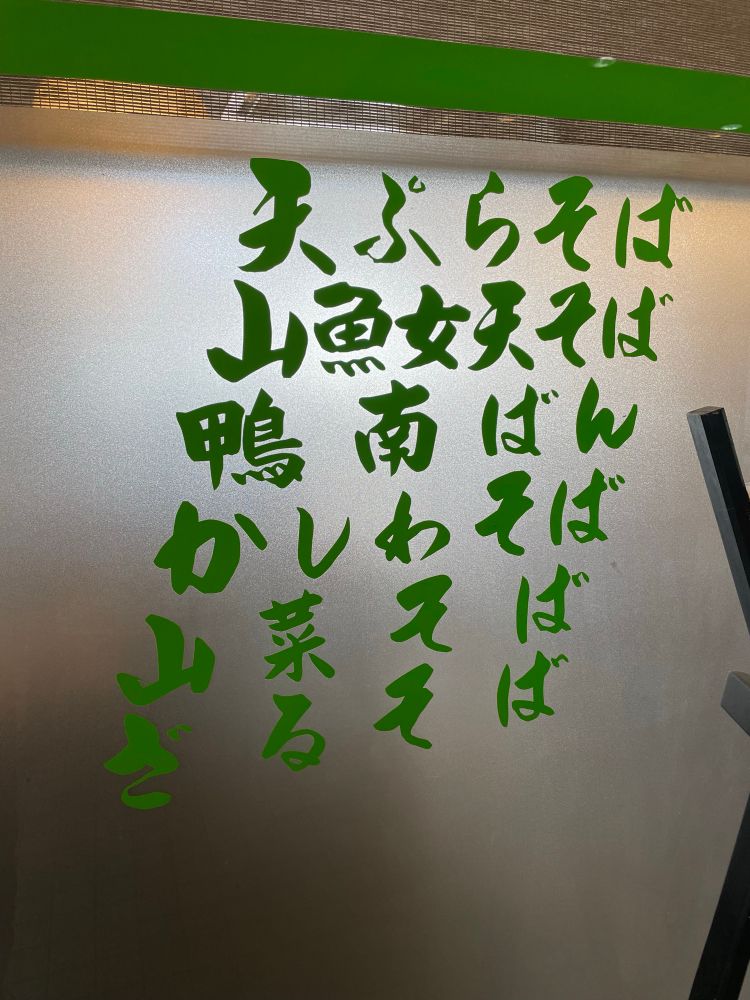 天ぷらそば
山魚女天そば
鴨南ばん
かしわそば
山菜そば
ざるそば